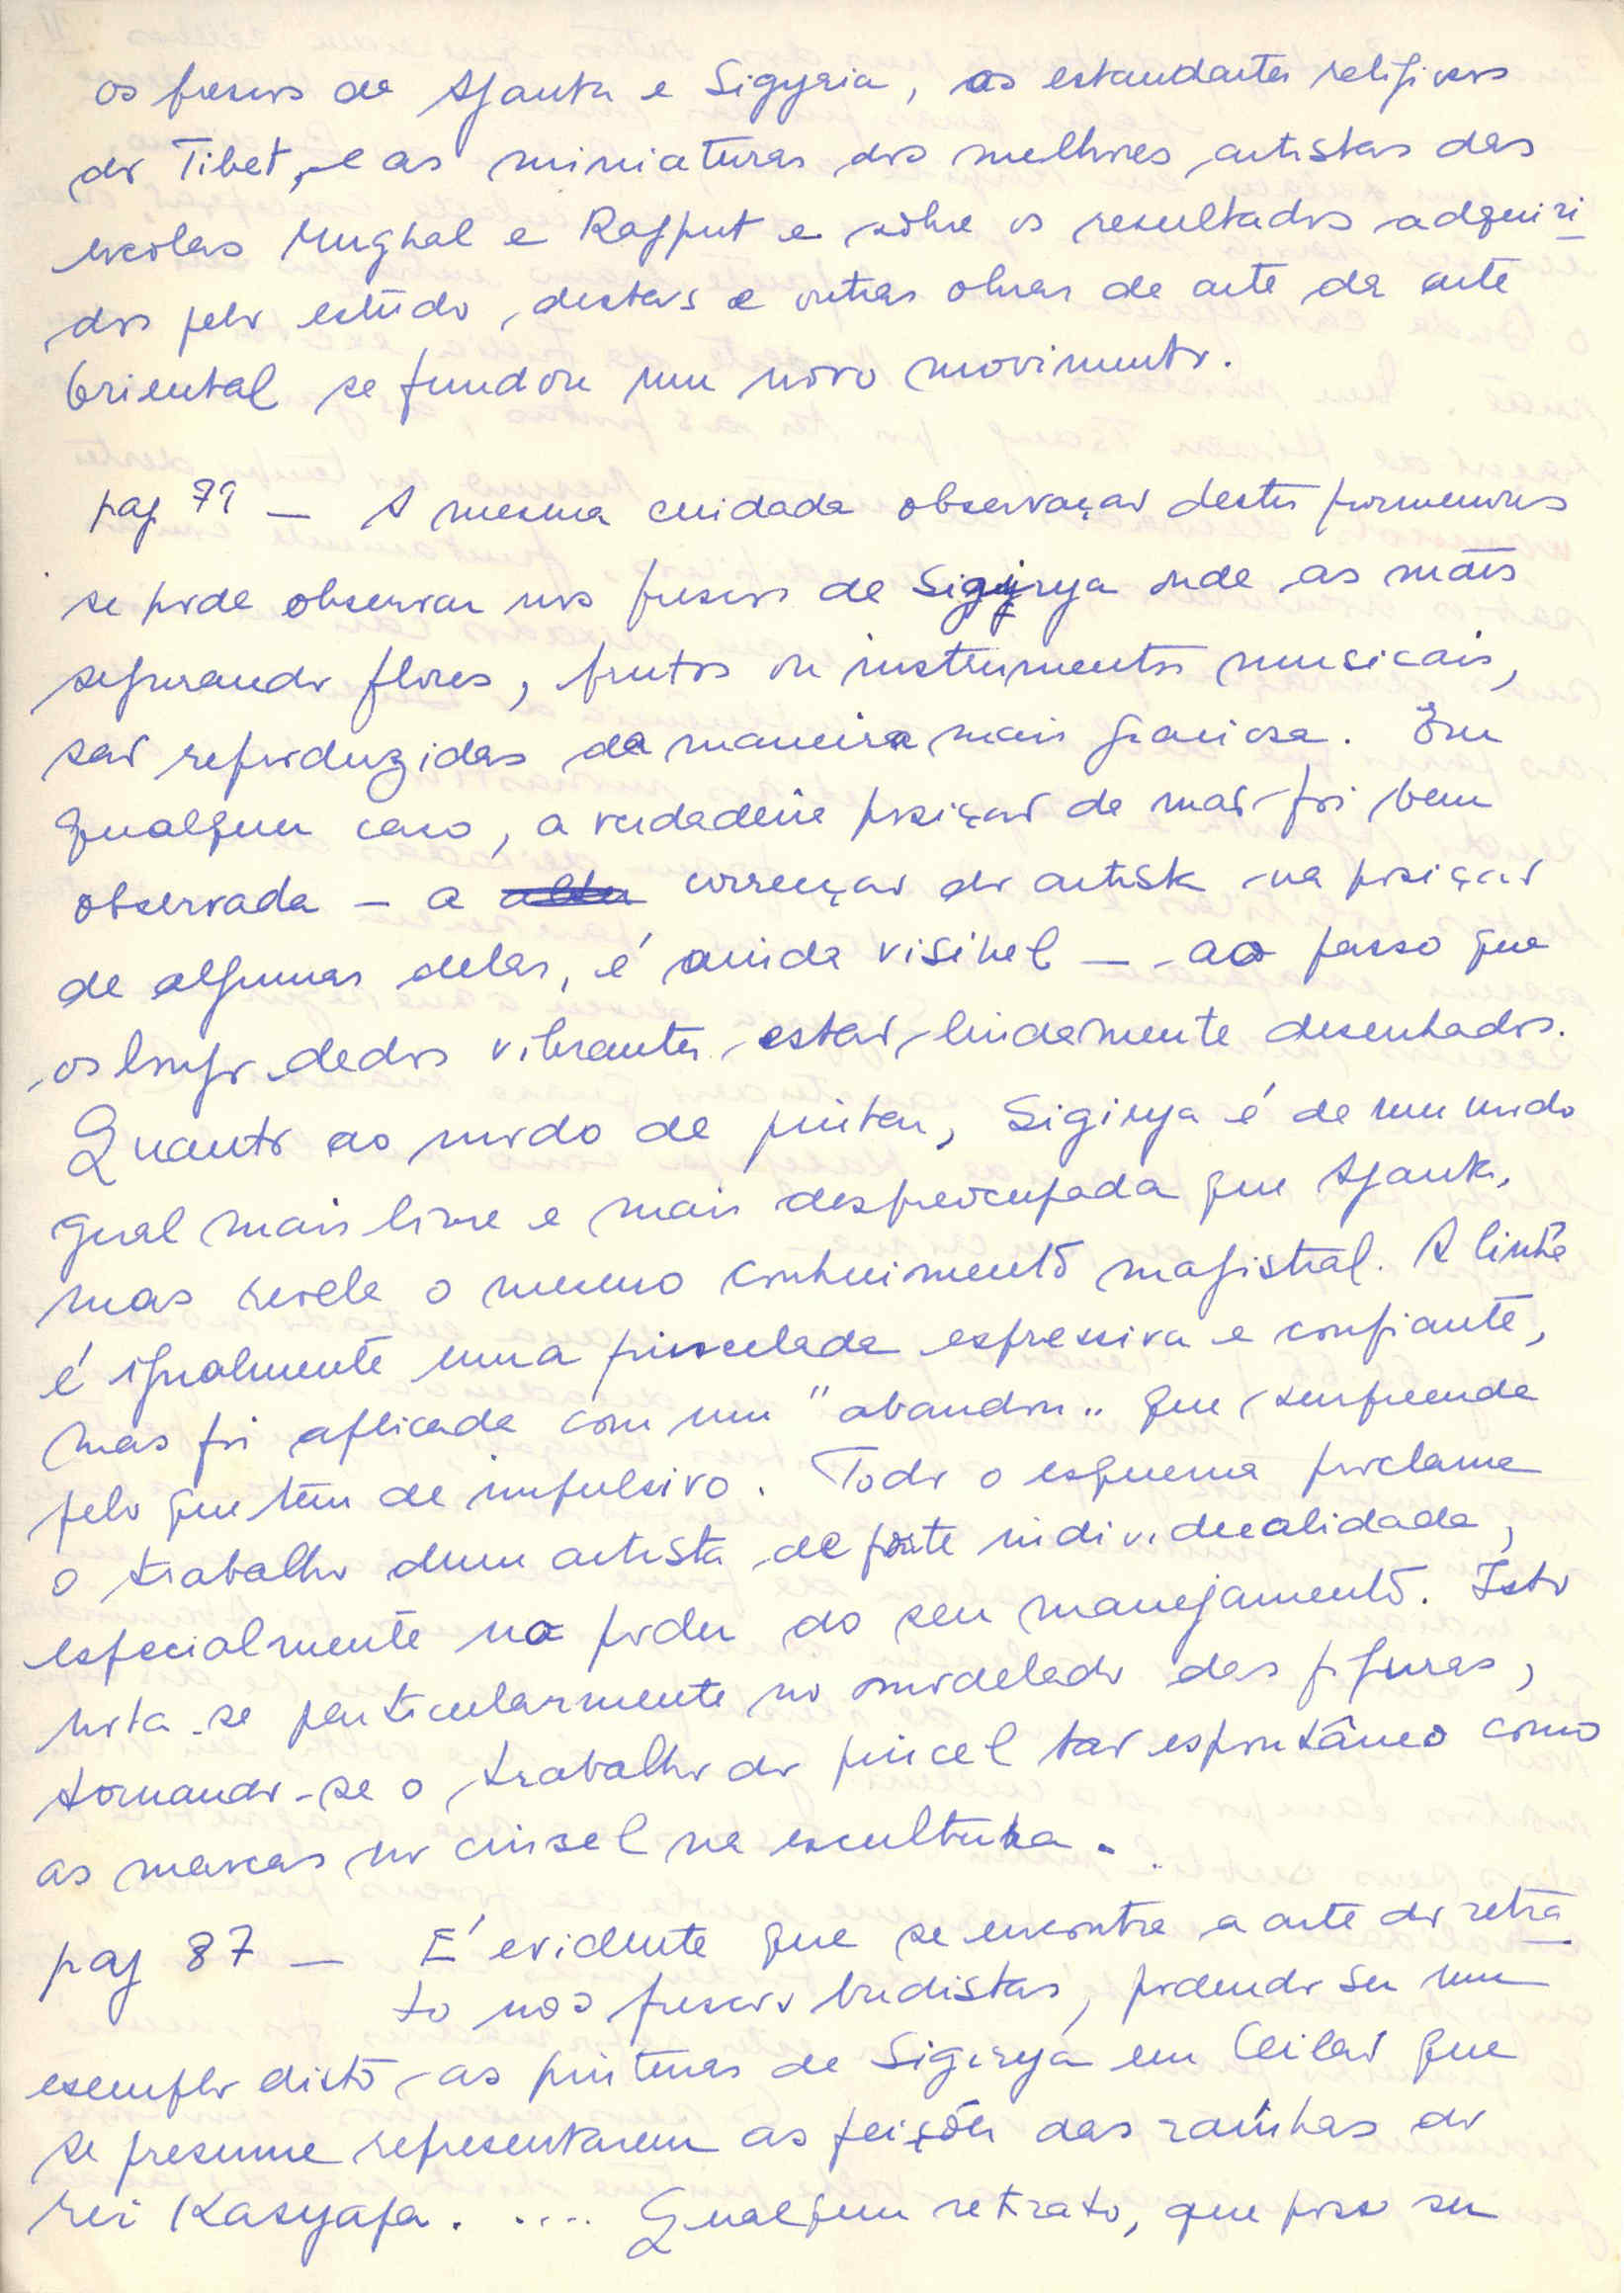 os frescos de Ajanta e Sigyria, os estandartes religiosos
do Tibet, e as miniaturas dos melhores artistas das
escolas Mughal e Rajput e sôbre os resultados adquiri
dos pelo estudo, destas e outras obras de arte da arte
Oriental se fundou um novo movimento.
pag 79 — A mesma cuidada observação destes pormenores
se pode observar nos frescos de Sigirya onde as mãos
segurando flores, frutos ou instrumentos musicais,
são reproduzidas da maneira mais graciosa. Em
qualquer caso, a verdadeira posição da mão foi bem
observada — a correnção do artista na posição
de algumas delas, é ainda visivel — ao passo que
os longo dedos vibrantes estão lindamente desenhados.
Quanto ao modo de pintar, Sigirya é de um modo
geral mais livre e mais despreocupada que Ajanta,
mas revela o mesmo conhecimento magistral. A linha
é igualmente uma pincelada expressiva e confiante,
mas foi aplicada com um "abandon" que surpreende
pelo que tem de impulsivo. Todo o esquema proclama
o trabalho dum artista de forte individualidade,
especialmente no poder do seu manejamento. Isto
nota-se particularmente no modelado das figuras,
tornando-se o trabalho do pincel tão espontâneo como
as marcas no cinsel na escultura.
pag 87 — É evidente que se encontra a arte do retra
to nos frescos budistas, podendo ser um
exemplo disto as pinturas de Sigirya em Ceilão que
se presume representarem as feições das rainhas do
rei Kasyapa. .... Qualquer retrato, que possa ser